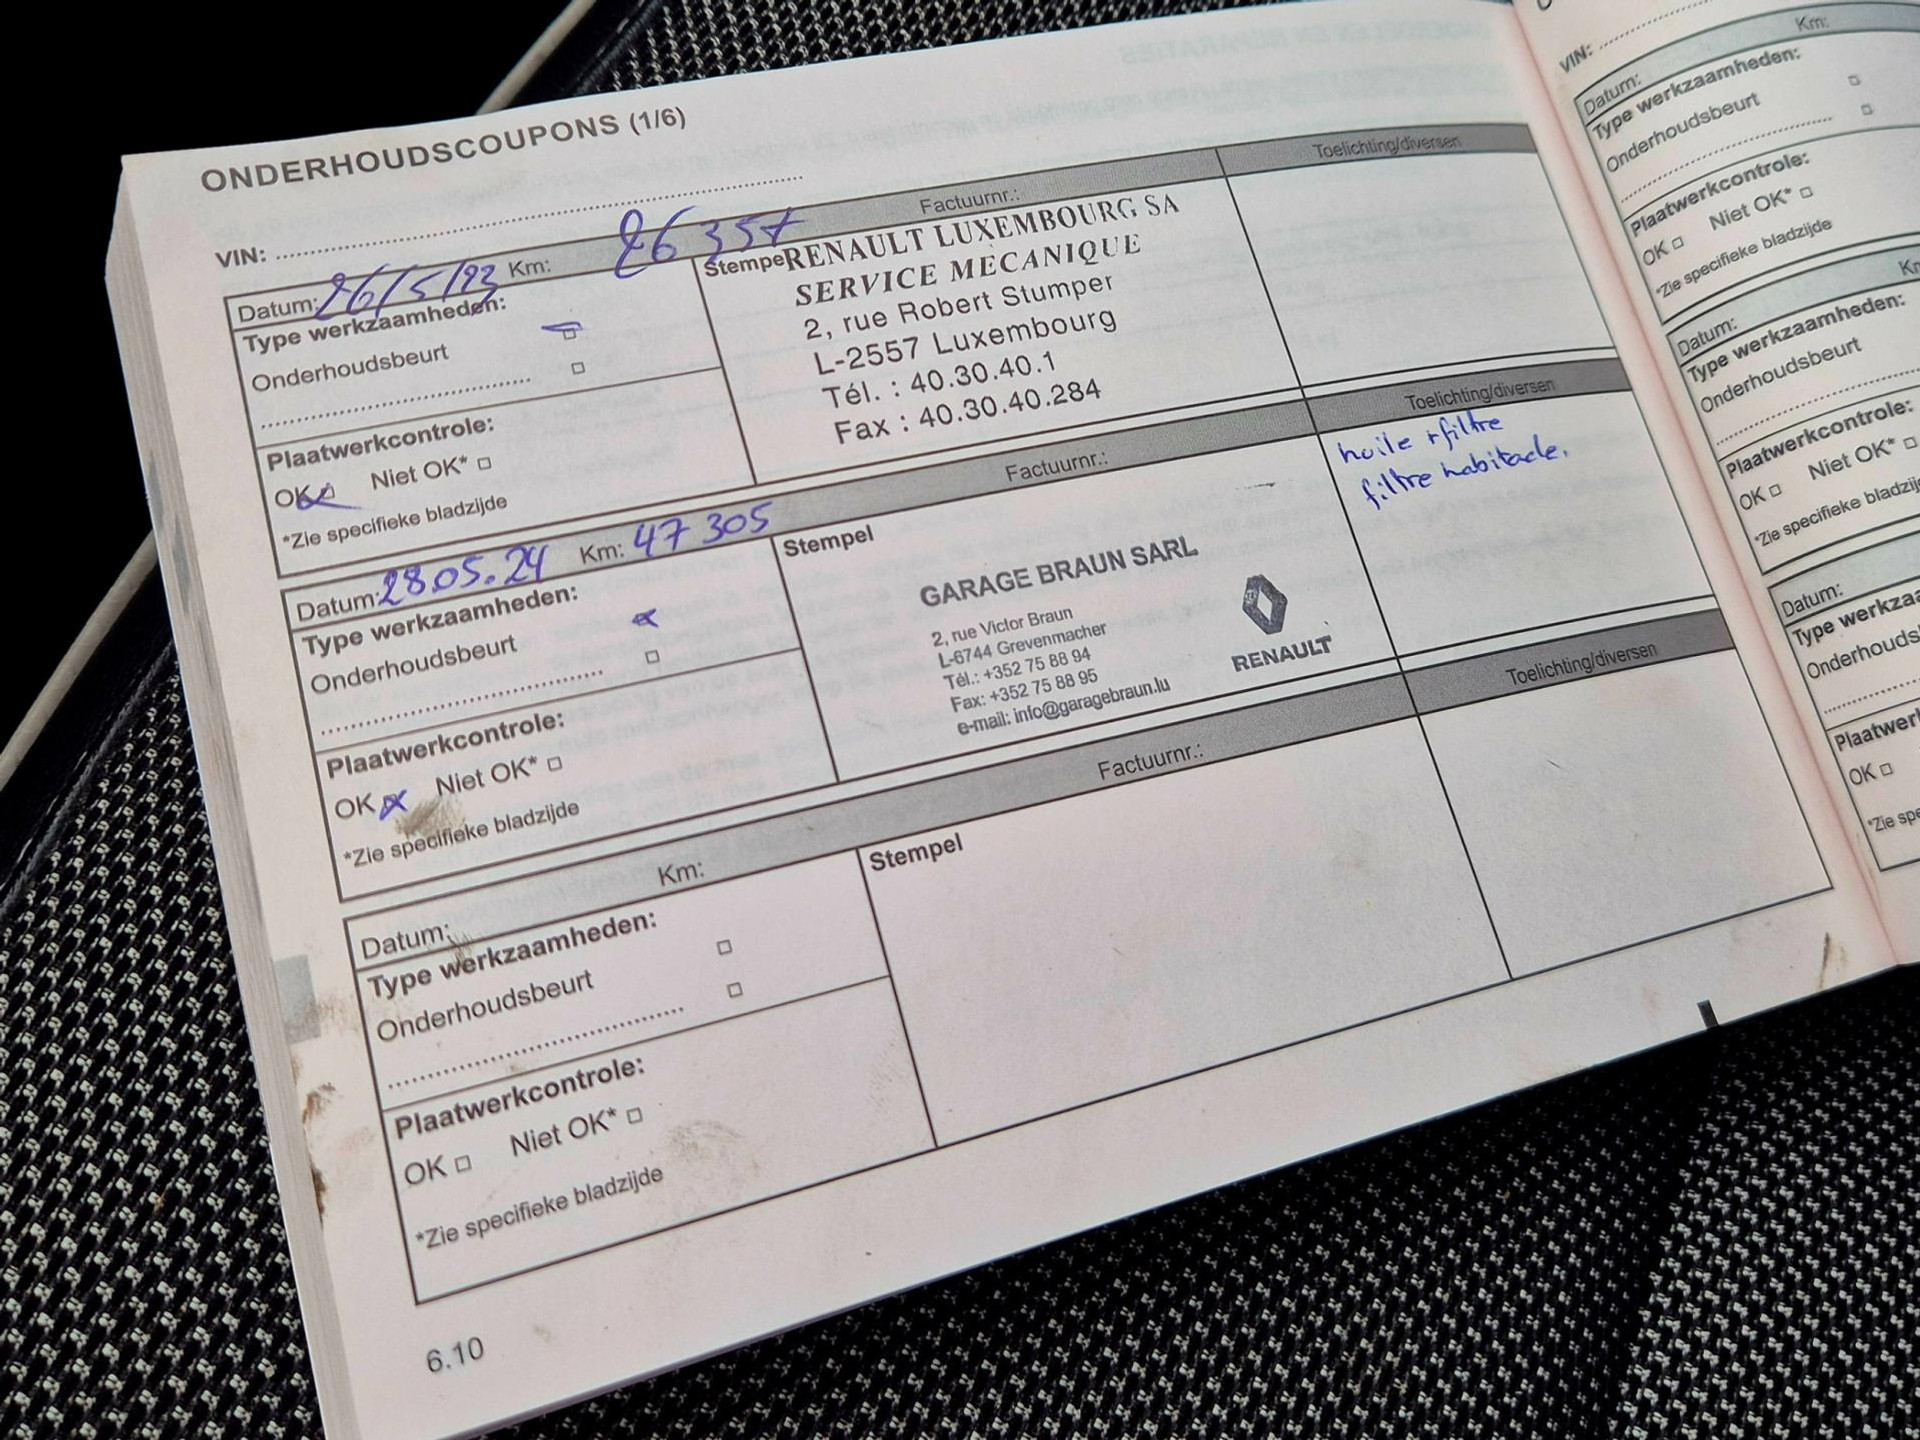 ONDERHOUDSCOUPONS (1/6)
VIN: ..........
Datum: 26/5/23 Km: 26 357 Factuurnr.: Toelichting/diversen
Type werkzaamheden:
Onderhoudsbeurt
..........
Plaatwerkcontrole:
OK Niet OK*
*Zie specifieke bladzijde
Stempel
RENAULT LUXEMBOURG SA
SERVICE MECANIQUE
2, rue Robert Stumper
L-2557 Luxembourg
Tél. : 40.30.40.1
Fax : 40.30.40.284
Datum: 28.05.24 Km: 47 305 Factuurnr.: Toelichting/diversen
Type werkzaamheden:
Onderhoudsbeurt
..........
Plaatwerkcontrole:
OK Niet OK*
*Zie specifieke bladzijde
Stempel
GARAGE BRAUN SARL
2, rue Victor Braun
L-6744 Grevenmacher
Tél.: +352 75 88 94
Fax: +352 75 88 95
e-mail: info@garagebraun.lu
RENAULT
huile + filtre
filtre habitacle.
Datum: Km: Factuurnr.: Toelichting/diversen
Type werkzaamheden:
Onderhoudsbeurt
..........
Plaatwerkcontrole:
OK Niet OK*
*Zie specifieke bladzijde
Stempel
6.10
VIN: ..........
Datum: Km:
Type werkzaamheden:
Onderhoudsbeurt
..........
Plaatwerkcontrole:
OK Niet OK*
*Zie specifieke bladzijde
Datum:
Type werkzaamheden:
Onderhoudsbeurt
..........
Plaatwerkcontrole:
OK Niet OK*
*Zie specifieke bladzijde
Datum:
OK